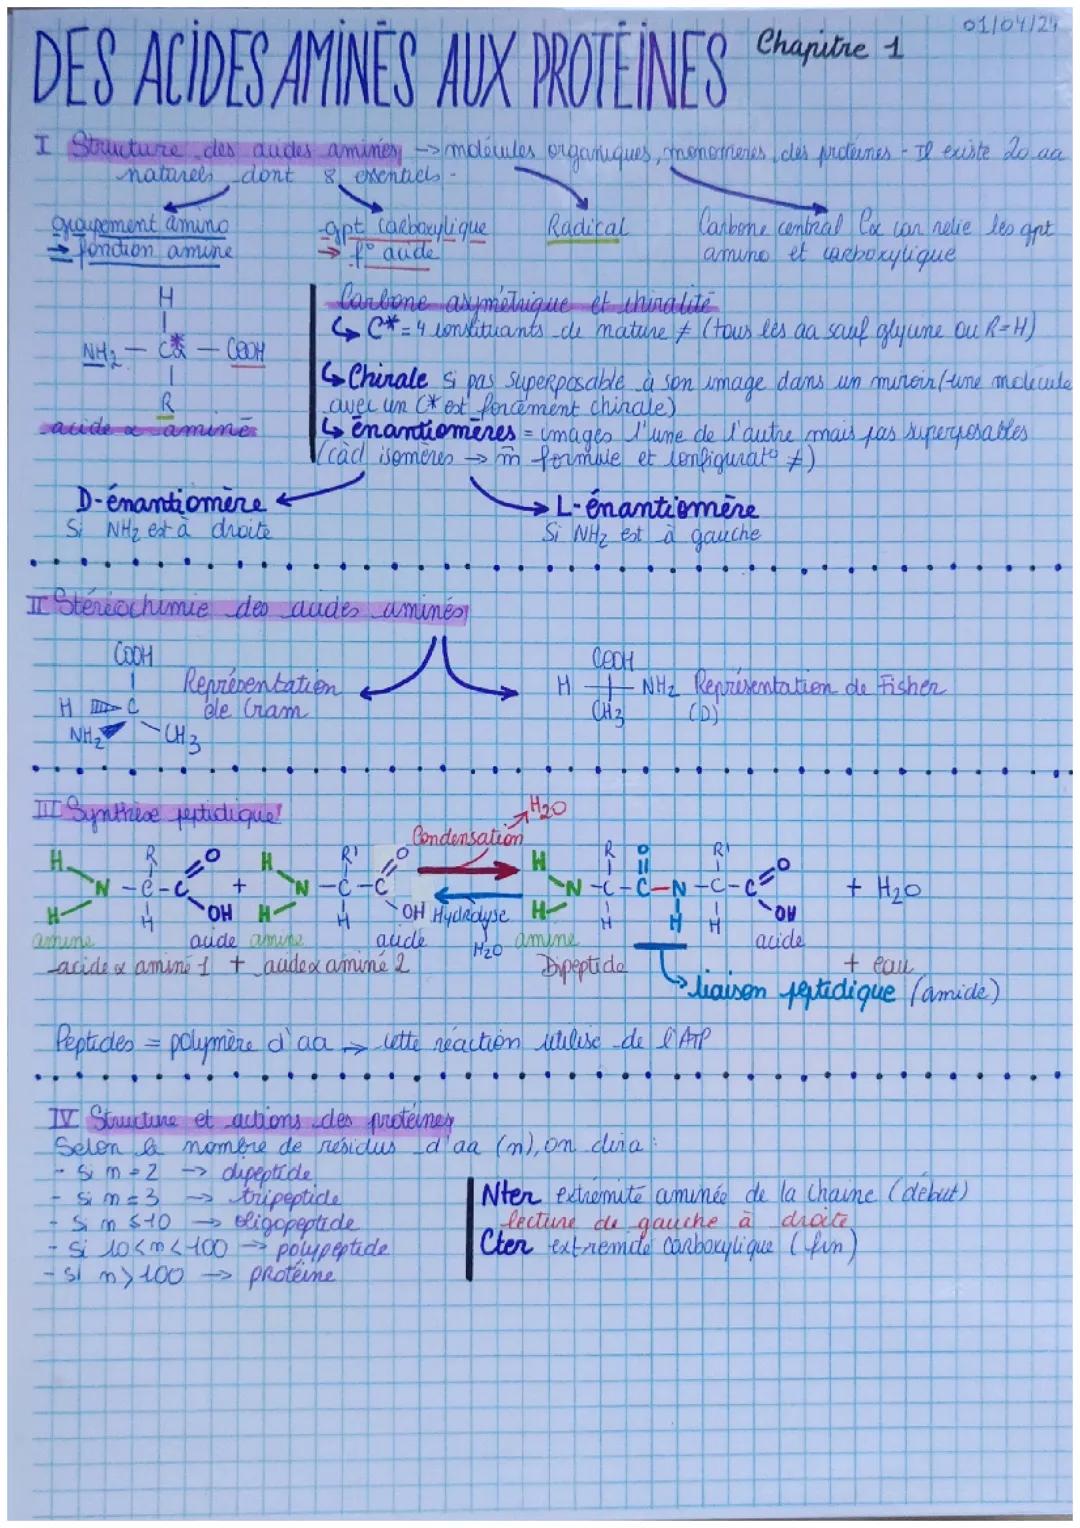 01/04/24
DES ACIDES AMINÉS AUX PROTÉINES Chapitre 1
I Structure des acides aminés → molécules organiques, monomères des protéines - Il existe 20 aa
naturels dont 8 essentiels -
groupement amino
→ fonction amine
gpt carboxylique
→ f° acide
Radical
Carbone central Cα car relie les gpt
amino et carboxylique
H
NH2 — Cα* — COOH
R
acide α aminé
Carbone asymétrique et chiralité
↳ C* = 4 constituants de nature ≠ (tous les aa sauf glycine ou R=H)
↳ Chirale si pas superposable à son image dans un miroir (une molécule
avec un C* est forcément chirale)
↳ énantiomères = images l'une de l'autre mais pas superposables
(càd isomères → m̄ formule et configurat° ≠)
D-énantiomère
Si NH2 est à droite
L-énantiomère
Si NH2 est à gauche
II Stéréochimie des acides aminés
COOH
H C
NH2 CH3
Représentation
de Cram
COOH
H NH2
CH3
Représentation de Fisher
(D)
III Synthèse peptidique
H R O H R' O Condensation H2O H R O R' O
N - C - C + N - C - C N - C - C - N - C - C + H2O
H H OH H H OH Hydrolyse H H H H OH
H2O
amine acide amine acide amine acide
acide α aminé 1 + acide α aminé 2 Dipeptide + eau
liaison peptidique (amide)
Peptides = polymère d'aa → cette réaction utilise de l'ATP
IV Structure et actions des protéines
Selon le nombre de résidus d'aa (n), on dira :
- Si n = 2 → dipeptide
- Si n = 3 → tripeptide
- Si n ≤ 10 → oligopeptide
- Si 10 < n < 100 → polypeptide
- Si n > 100 → protéine
Nter extrémité aminée de la chaine (début)
lecture de gauche à droite
Cter extremité carboxylique (fin)